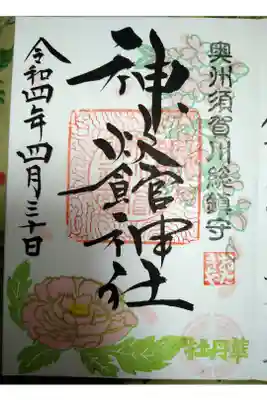 奥州須賀川総鎮守
神炊館神社
令和四年四月三十日
牡丹華